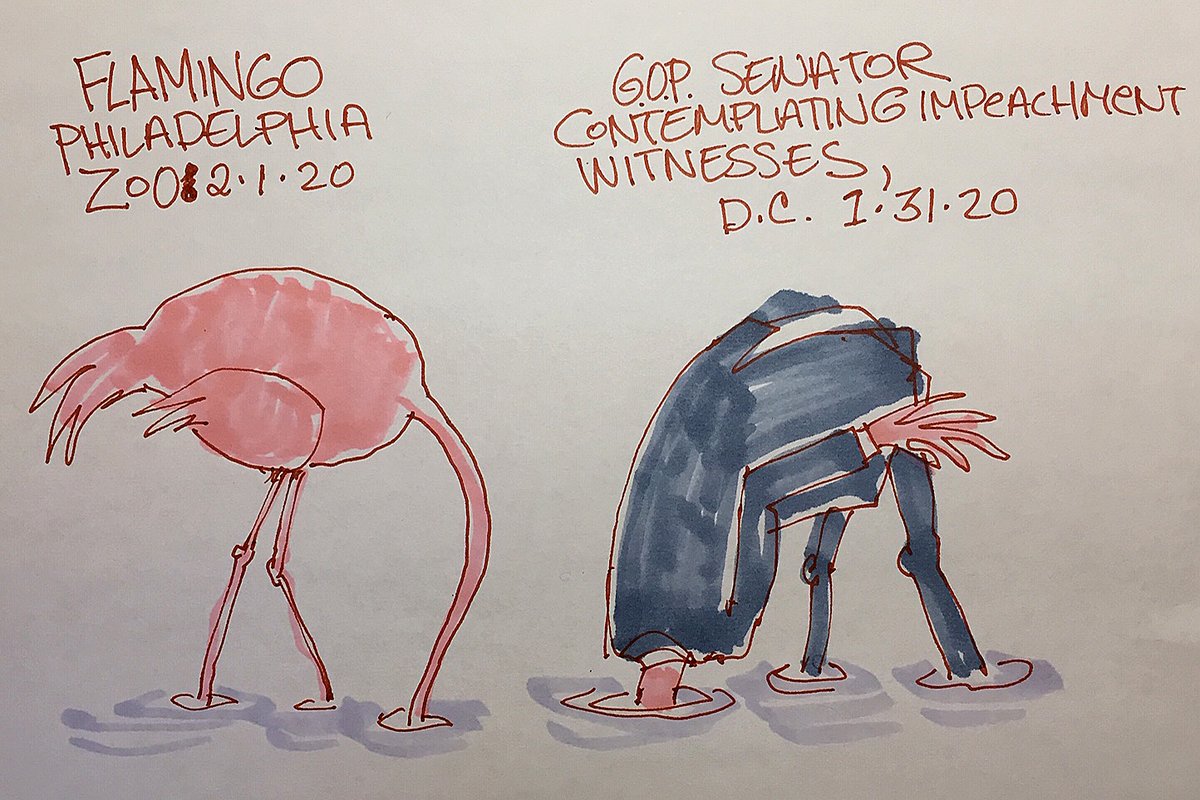 FLAMINGO
PHILADELPHIA
ZOO 2.1.20
G.O.P. SENATOR
CONTEMPLATING IMPEACHMENT
WITNESSES,
D.C. 1.31.20